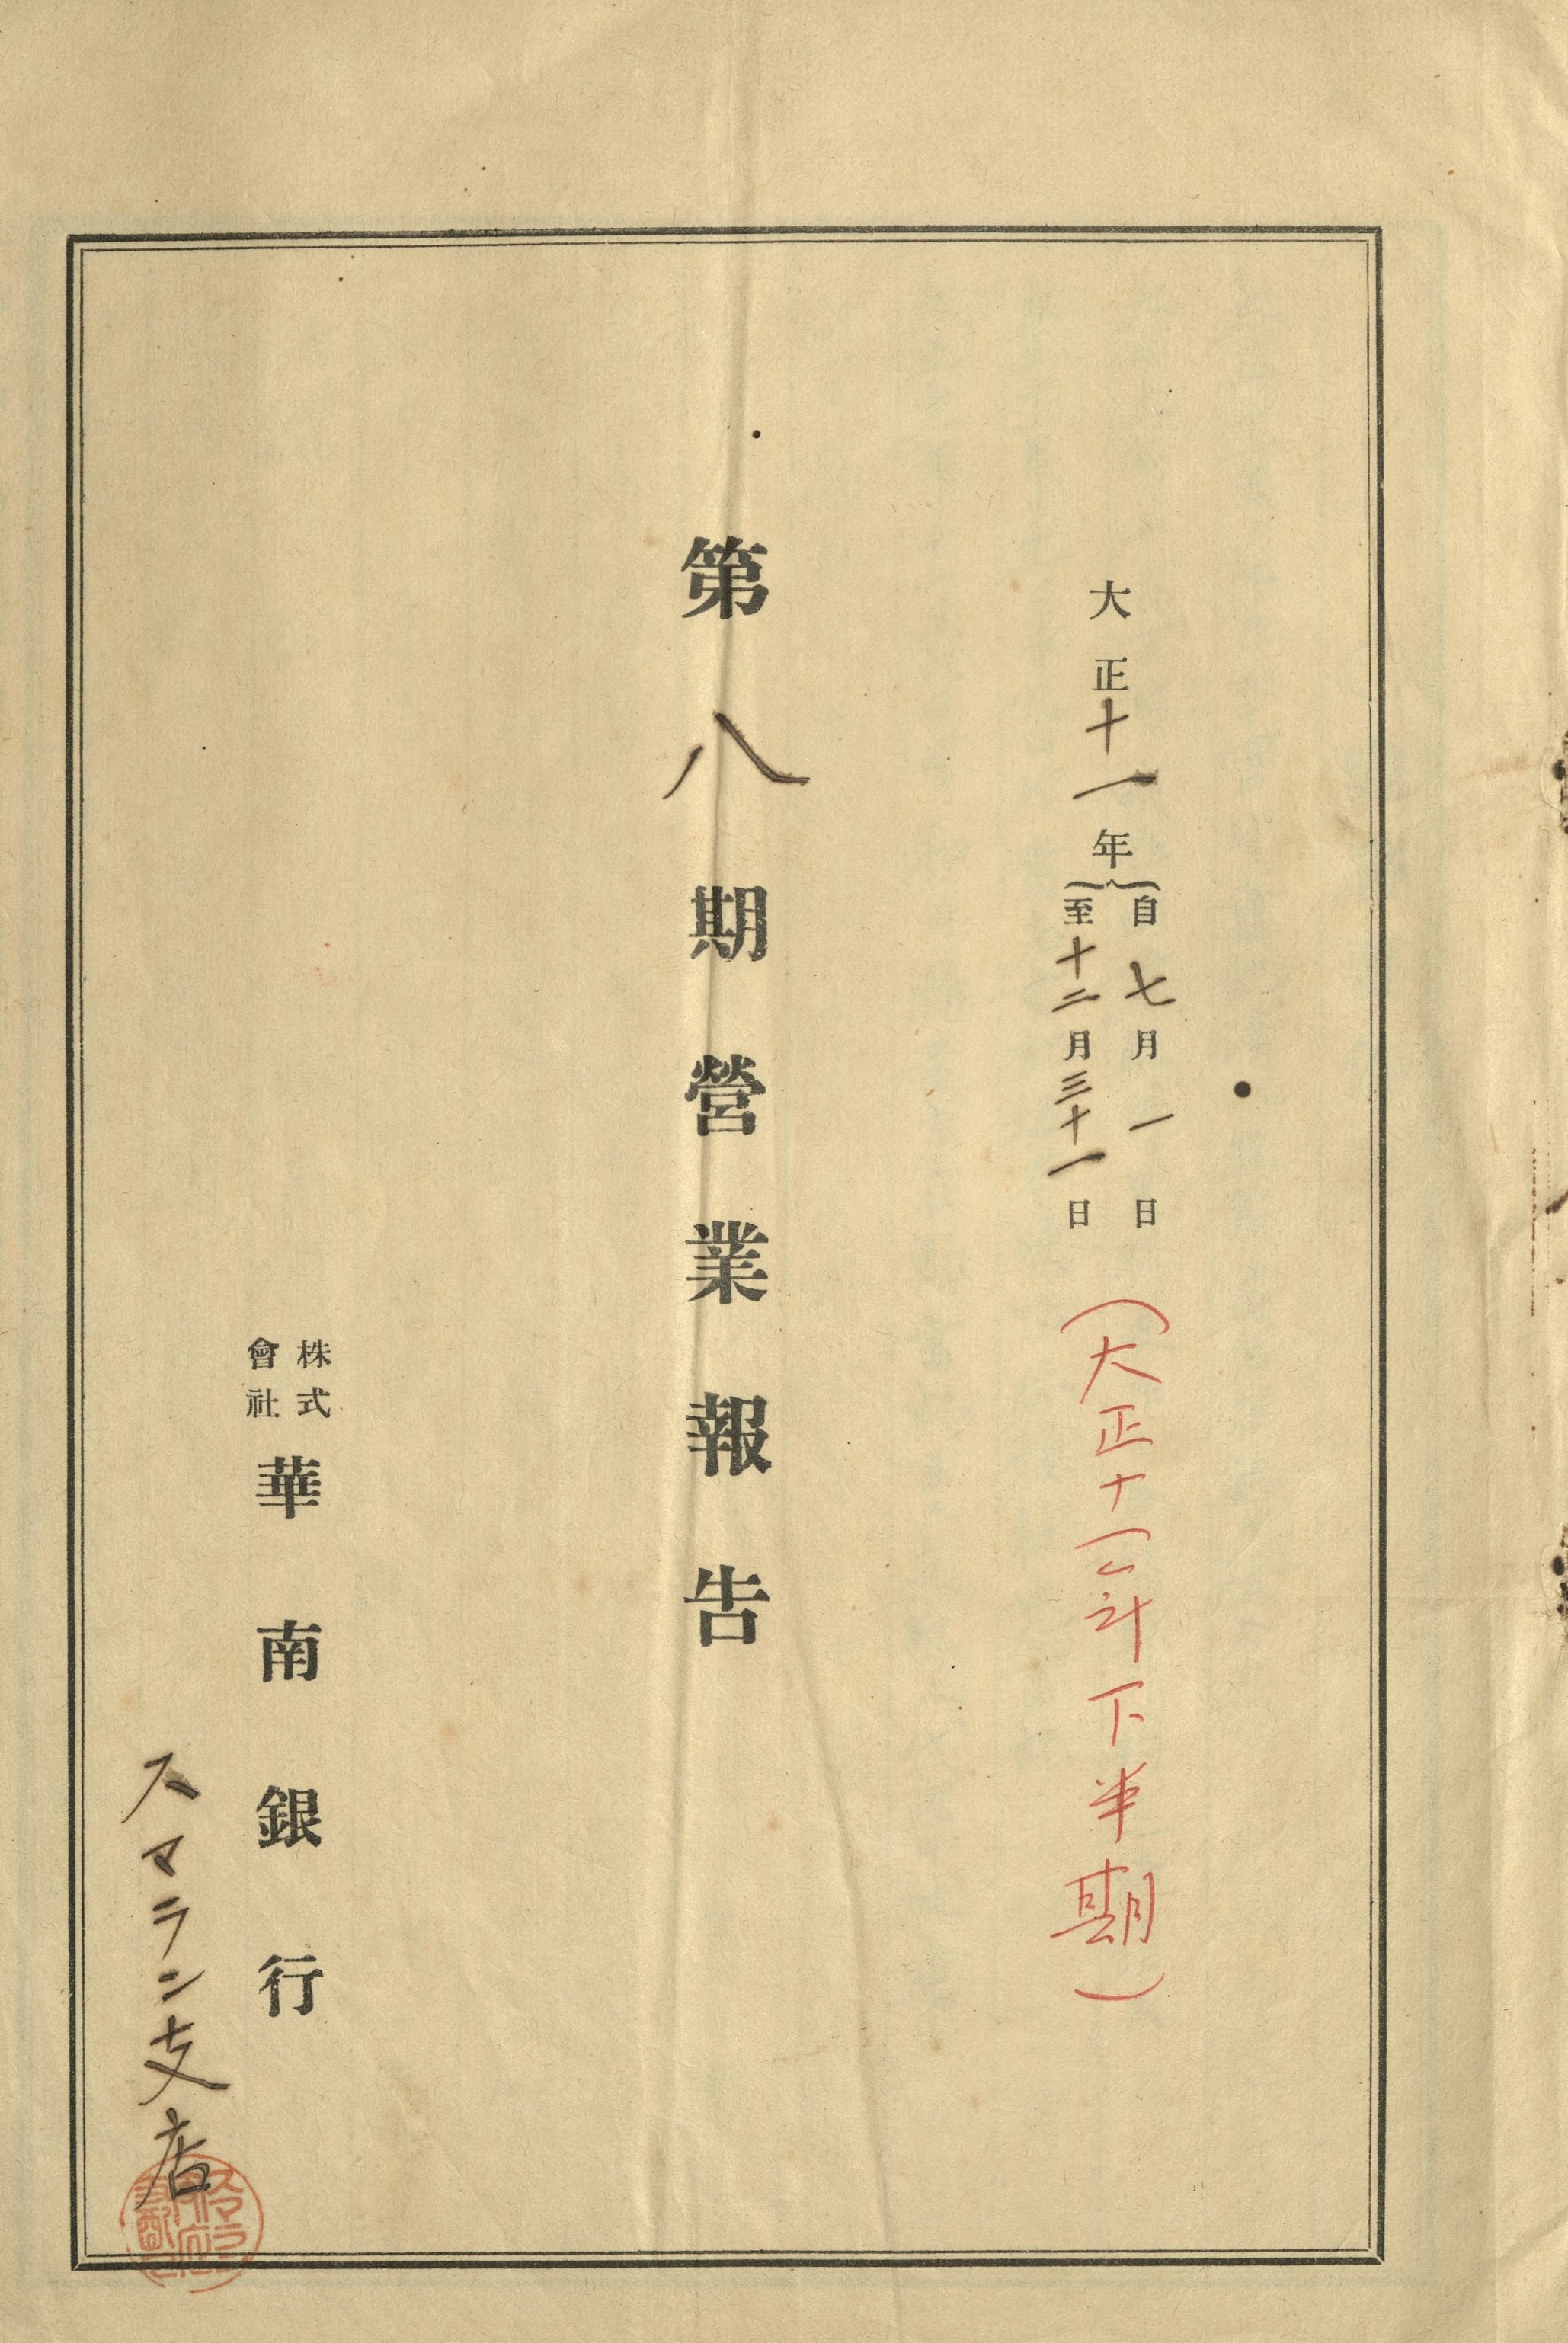 大正十一年
自七月一日
至十二月三十一日
(大正十一年下半期)
第八期營業報告
株式會社
華南銀行
スマラン支店